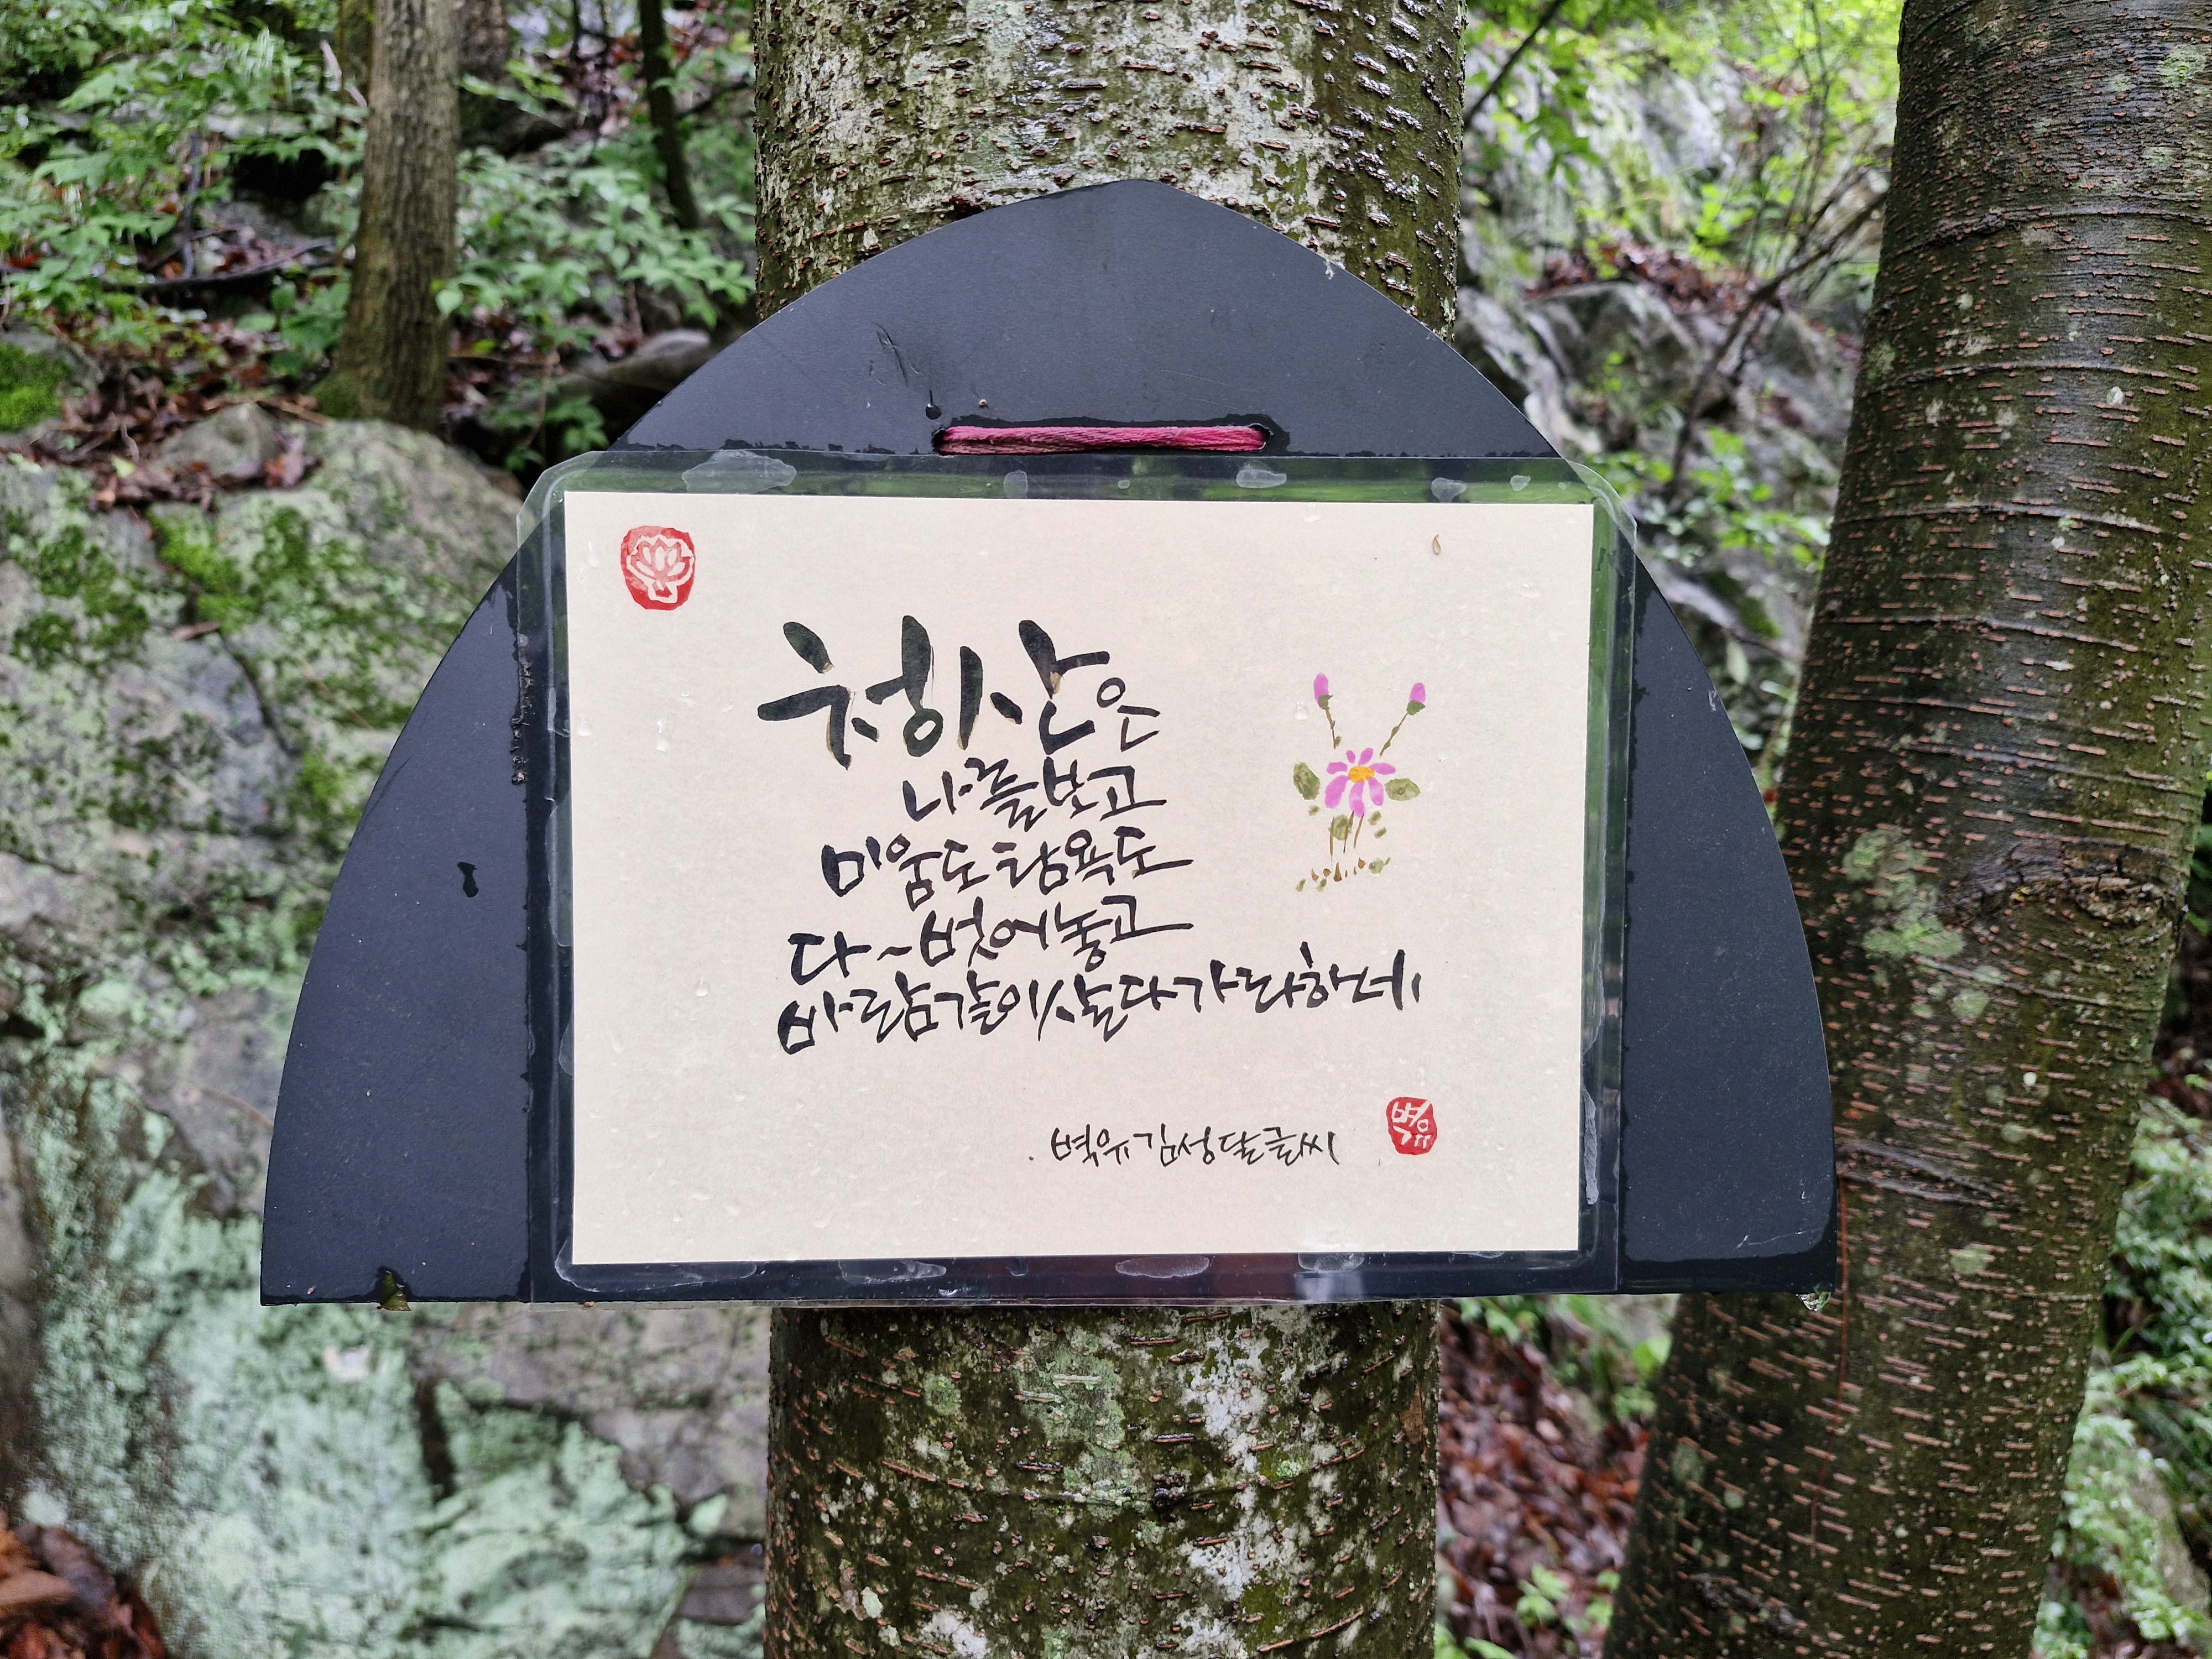 청산은
나를보고
미움도 탐욕도
다~벗어놓고
바람같이살다가라하네
벽유김성달글씨